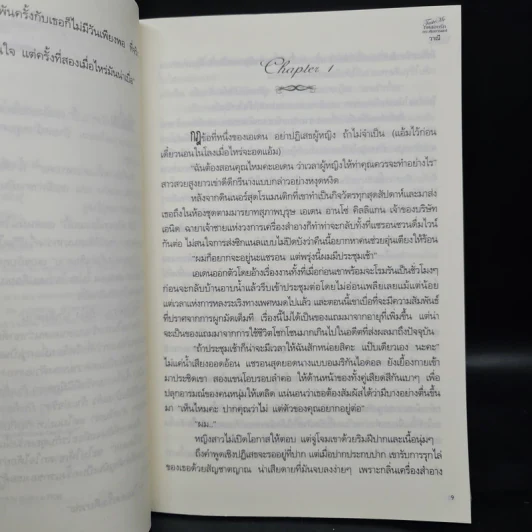 พันครั้งกับเธอก็ไม่มีวันเพียงพอ
นใจ แต่ครั้งที่สองเมื่อไหร่มันน่าเบื่อ
วาณี
Chapter 1
กฎข้อที่หนึ่งของเอเดน อย่าปฏิเสธผู้หญิง ถ้าไม่จำเป็น (แอ้มไว้ก่อน
เดี๋ยวนอนในโลงเมื่อไหร่จะอดแอ้ม)
“ฉันต้องสอนคุณไหมคะเอเดน ว่าเวลาผู้หญิงให้ท่าคุณควรจะทำอย่างไร”
สาวสวยสูงยาวเข่าดีดีกรีนางแบบกล่าวอย่างหงุดหงิด
หลังจากดินเนอร์สุดโรแมนติกที่เขาทำเป็นกิจวัตรทุกสุดสัปดาห์และมาส่ง
เธอถึงในห้องชุดตามมารยาทสุภาพบุรุษ เอเดน อานโซ่ คิลลิแกน เจ้าของบริษัท
เอนิด ฉายาเจ้าชายแห่งวงการเครื่องสำอางก็ทำท่าจะกลับทั้งที่แชรอนชวนดื่มไวน์
กันต่อ ไม่สนใจการส่งซิกแนลแบบไม่ปิดบังว่าคืนนี้อยากหาคนช่วยอุ่นเตียงให้ร้อน
“ผมก็อยากจะอยู่นะแชรอน แต่พรุ่งนี้ผมมีประชุมเช้า”
เอเดนออกตัวโดยอ้างเรื่องงานทั้งที่เมื่อก่อนเขาพร้อมจะโรมรันเป็นชั่วโมงๆ
ก่อนจะกลับบ้านอาบน้ำแล้วรีบเข้าประชุมต่อโดยไม่อ่อนเพลียเลยแม้แต่น้อย
แต่เวลาแห่งการหลงระเริงทางเพศหมดไปแล้ว และตอนนี้เขาเบื่อที่จะมีความสัมพันธ์
ที่ปราศจากการผูกมัดเต็มที เรื่องนี้ไม่ได้เป็นของแถมมาจากอายุที่เพิ่มขึ้น แต่น่า
จะเป็นของแถมมาจากการใช้ชีวิตโชกโชนมากเกินไปในอดีตที่ส่งผลมาถึงปัจจุบัน
“ถ้าประชุมเช้าก็น่าจะมีเวลาให้ฉันสักหน่อยสิคะ แป๊บเดียวเอง นะคะ”
ไม่แค่น้ำเสียงออดอ้อน แชรอนสุดยอดนางแบบอเมริกันไอดอล ยังเยื้องกายเข้า
มาประชิดเขา สองแขนโอบรอบลำคอ ให้ด้านหน้าของทั้งคู่เสียดสีกันเบาๆ เพื่อ
ปลุกอารมณ์ของคนหนุ่มให้เตลิด แน่นอนว่าเธอต้องสัมผัสได้ว่ามีบางอย่างตื่นขึ้น
มา “เห็นไหมคะ ปากคุณว่าไม่ แต่ตัวของคุณอยากอยู่ต่อ”
“ผม..”
หญิงสาวไม่เปิดโอกาสให้ตอบ แต่จู่โจมเขาด้วยริมฝีปากและเนื้อนุ่มๆ
ถึงคำพูดเชิงปฏิเสธจะรออยู่ที่ปาก แต่เมื่อปากประกบปาก เขารับการรุกไล่
ของเธอด้วยสัญชาตญาณ น่าเสียดายที่มันจบลงง่ายๆ เพราะกลิ่นเครื่องสำอาง
9